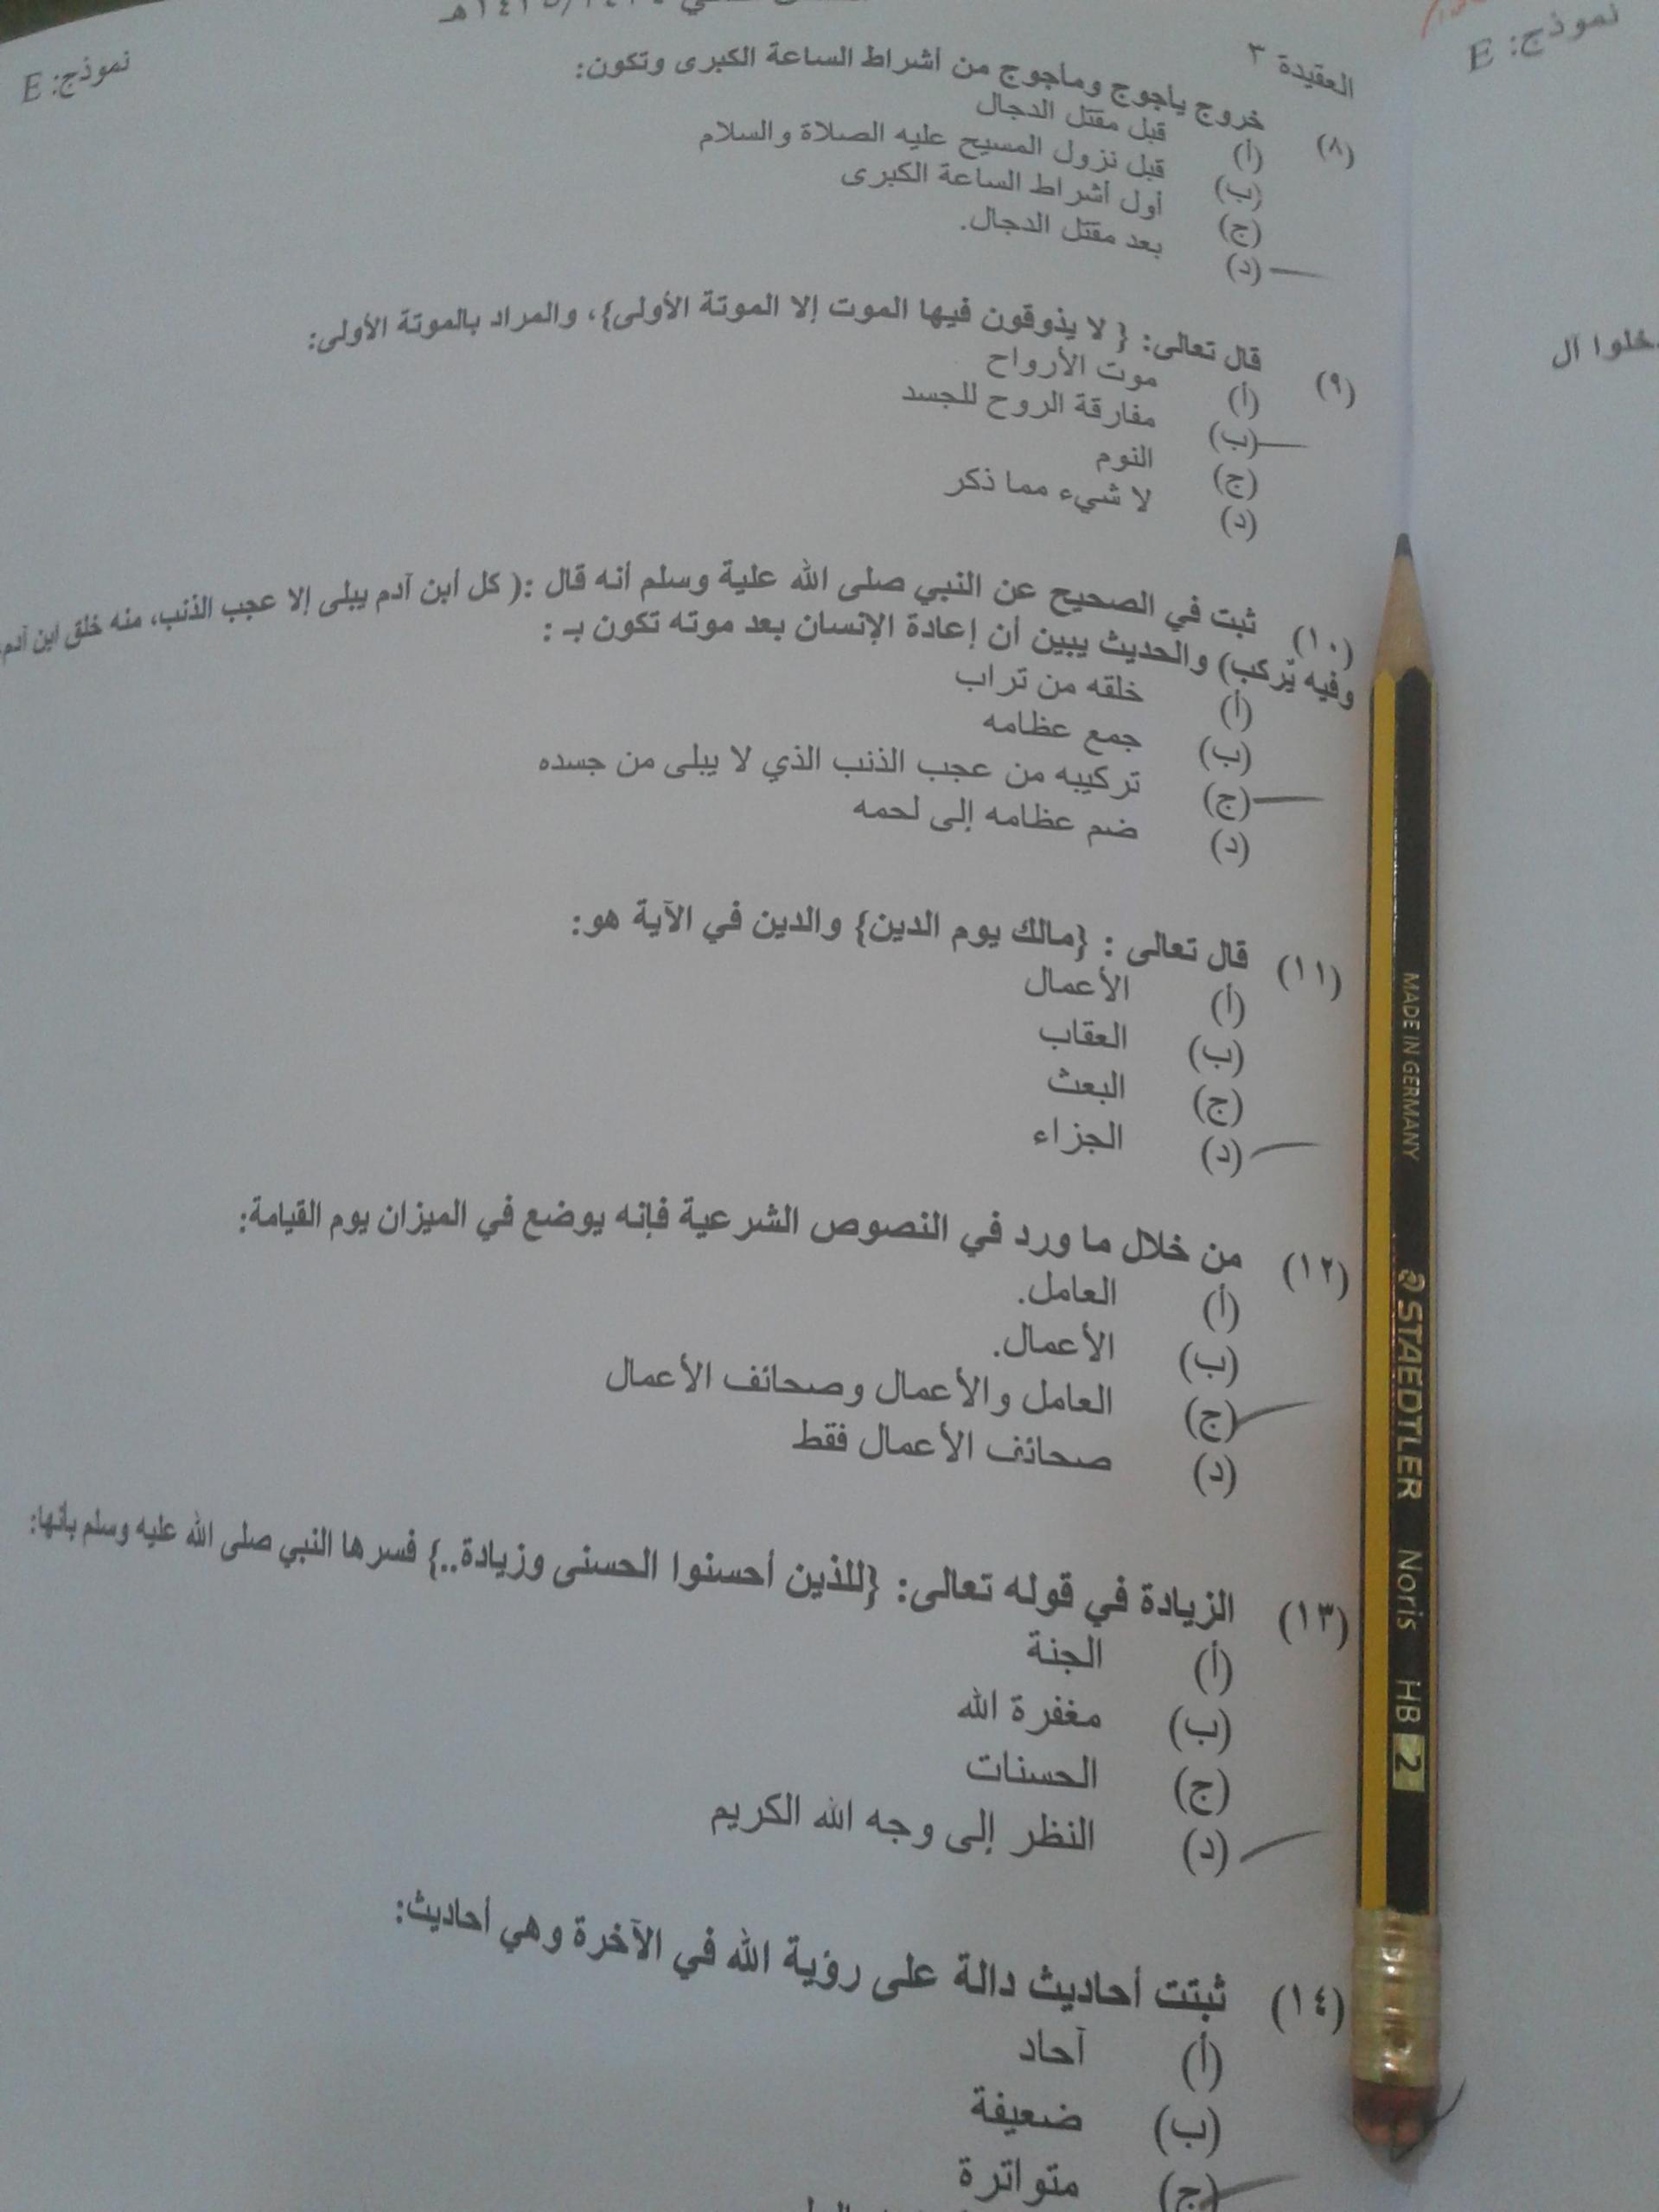 نموذج: E
نموذج: E
العقيدة ٣
(٨) خروج ياجوج وماجوج من أشراط الساعة الكبرى وتكون:
(أ) قبل مقتل الدجال
(ب) قبل نزول المسيح عليه الصلاة والسلام
(ج) أول أشراط الساعة الكبرى
(د) بعد مقتل الدجال.
(٩) قال تعالى: { لا يذوقون فيها الموت إلا الموتة الأولى}، والمراد بالموتة الأولى:
(أ) موت الأرواح
(ب) مفارقة الروح للجسد
(ج) النوم
(د) لا شيء مما ذكر
(١٠) ثبت في الصحيح عن النبي صلى الله علية وسلم أنه قال :( كل أبن آدم يبلى إلا عجب الذنب، منه خلق ابن آدم
وفيه يُركب) والحديث يبين أن إعادة الإنسان بعد موته تكون بـ :
(أ) خلقه من تراب
(ب) جمع عظامه
(ج) تركيبه من عجب الذنب الذي لا يبلى من جسده
(د) ضم عظامه إلى لحمه
(١١) قال تعالى : {مالك يوم الدين} والدين في الآية هو:
(أ) الأعمال
(ب) العقاب
(ج) البعث
(د) الجزاء
(١٢) من خلال ما ورد في النصوص الشرعية فإنه يوضع في الميزان يوم القيامة:
(أ) العامل.
(ب) الأعمال.
(ج) العامل والأعمال وصحائف الأعمال
(د) صحائف الأعمال فقط
(١٣) الزيادة في قوله تعالى: {للذين أحسنوا الحسنى وزيادة..} فسرها النبي صلى الله عليه وسلم بأنها:
(أ) الجنة
(ب) مغفرة الله
(ج) الحسنات
(د) النظر إلى وجه الله الكريم
(١٤) ثبتت أحاديث دالة على رؤية الله في الآخرة وهي أحاديث:
(أ) آحاد
(ب) ضعيفة
(ج) متواترة
MADE IN GERMANY STAEDTLER Noris HB 2